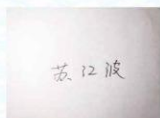 苏江波